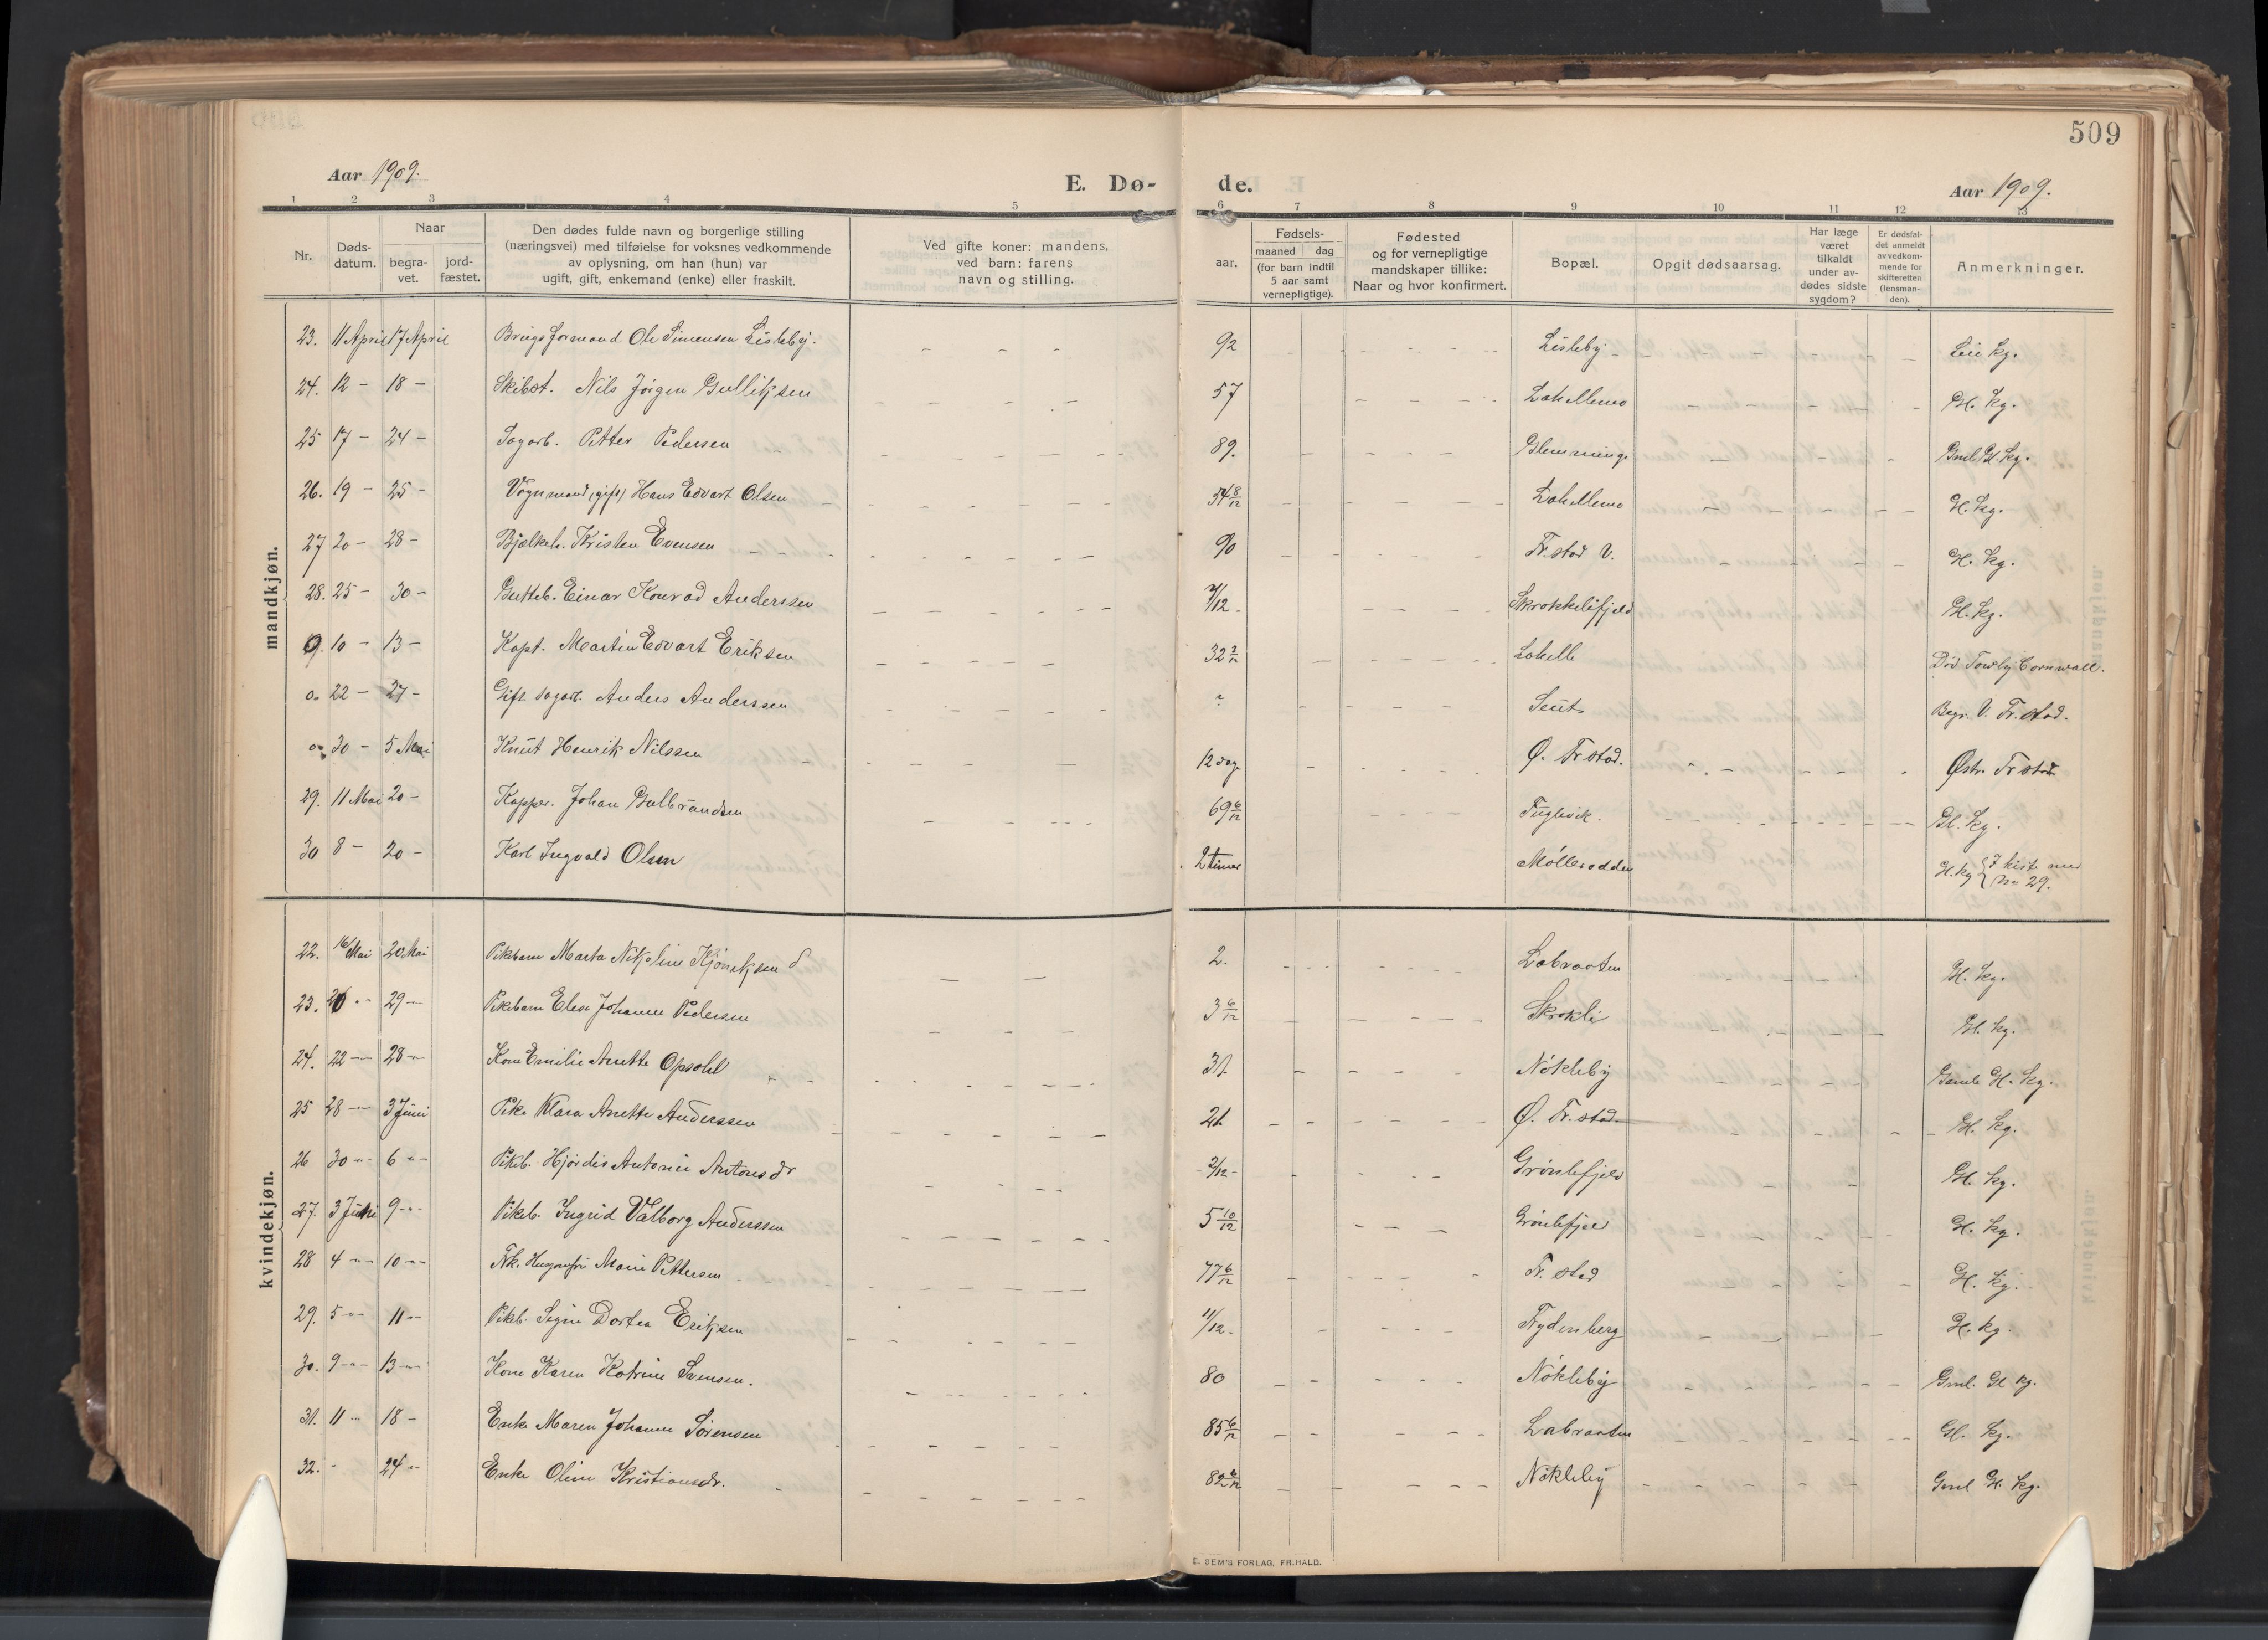 509
Aar 1909.
E. Dø-
de.
Aar 1909.
1 2 3 4 5 6 7 8 9 10 11 12 13
Nr.
Døds-
datum.
Naar
begra-
vet.
jord-
fæstet.
Den dødes fulde navn og borgerlige stilling
(næringsvei) med tilføielse for voksnes vedkommende
av oplysning, om han (hun) var
ugift, gift, enkemand (enke) eller fraskilt.
Ved gifte koner: mandens,
ved barn: farens
navn og stilling.
aar.
Fødsels-
maaned dag
(for barn indtil
5 aar samt
vernepligtige).
Fødested
og for vernepligtige
mandskaper tillike:
Naar og hvor konfirmert.
Bopæl.
Opgit dødsaarsag.
Har læge
været
tilkaldt
under av-
dødes sidste
sygdom?
Er dødsfal-
det anmeldt
av vedkom-
mende for
skifteretten
(lensman-
den).
Anmerkninger.
mandkjøn.
23. 11 April 17 April Brugsformand Ole Simensen Lisleby. - - - 92 Lisleby Leie kg.
24. 12 - 18 - Skibst. Nils Jörgen Gulliksen - - - - 57 Lahellemo Gl. kg.
25 17 - 24 - Sagarb. Petter Pedersen 89. Glemminge Gml. Gl. kg.
26. 19 - 25 - Vognmand (gift) Hans Edvart Olsen 54 8/12 Lahellemo Gl. kg.
27 20 - 28 - Bjælkeh. Kristen Evensen 90 Fr.stad V. Gl. kg.
28. 25 - 30 - Gutteb. Einar Konrad Anderssen 7/12 - Skrokkelifjeld Gl. kg.
0. 10 - 13 - Kapt. Martin Edvart Eriksen 32 3/12 Lahelle Död Cornwall.
0. 22 - 27 - Gift sagarb. Anders Anderssen ? Seut Begr. V. Fr.stad.
0. 30 - 5 Mai Knut Henrik Nilssen 12 dag Ø. Fr.stad. Østr. Fr.stad
29. 11 Mai 20 - Kapper. Johan Gulbrandsen 69 6/12 Fuglevik. Gl. kg.
30 8 - 20 - Karl Ingvald Olsen 2 timer Mölleodden Gl. kg { I kiste med
No 29.
kvindekjøn.
22. 16 Mai 20 Mai Pikebarn Marta Nikoline 2. Labraaten Gl. kg.
23. 20 - 29 - Pikebarn Elese Johanne Pedersen 3 6/12 Skrokli Gl. kg.
24. 22 - 28 - Kone Emilie Anette Opsahl 31. Nökleby Gamle Gl. kg.
25 28 - 3 Juni Pike Klara Anette Anderssen 21. Ø. Fr.stad Gl. kg.
26 30 - 6 - Pikeb. Hjördis Antonie Antonsdr - 2/12 - Grönlifjeld Gl. kg.
27. 3 Juni 9 - Pikeb. Ingrid Valborg Anderssen 5 10/12 Grönlifjeld Gl. kg.
28 4 - 10 - Fhv. Husjomfru Marie Pettersen 77 6/12 Fr. stad Gl. kg.
29. 5 - 11 - Pikeb. Signe Dortea Eriksen 11/12 - Frydenberg Gl. kg.
30. 9 - 13 - Kone Karen Katrine Svensen. 80 Nökleby Gml. Gl kg.
31. 11 - 18 - Enke Maren Johanne Sörensen 85 6/12 Labraaten Gl. kg.
32. - 24 - Enke Oline Kristiansdr. 82 Nökleby Gml Gl. kg.
E. SEM'S FORLAG, FR.HALD.